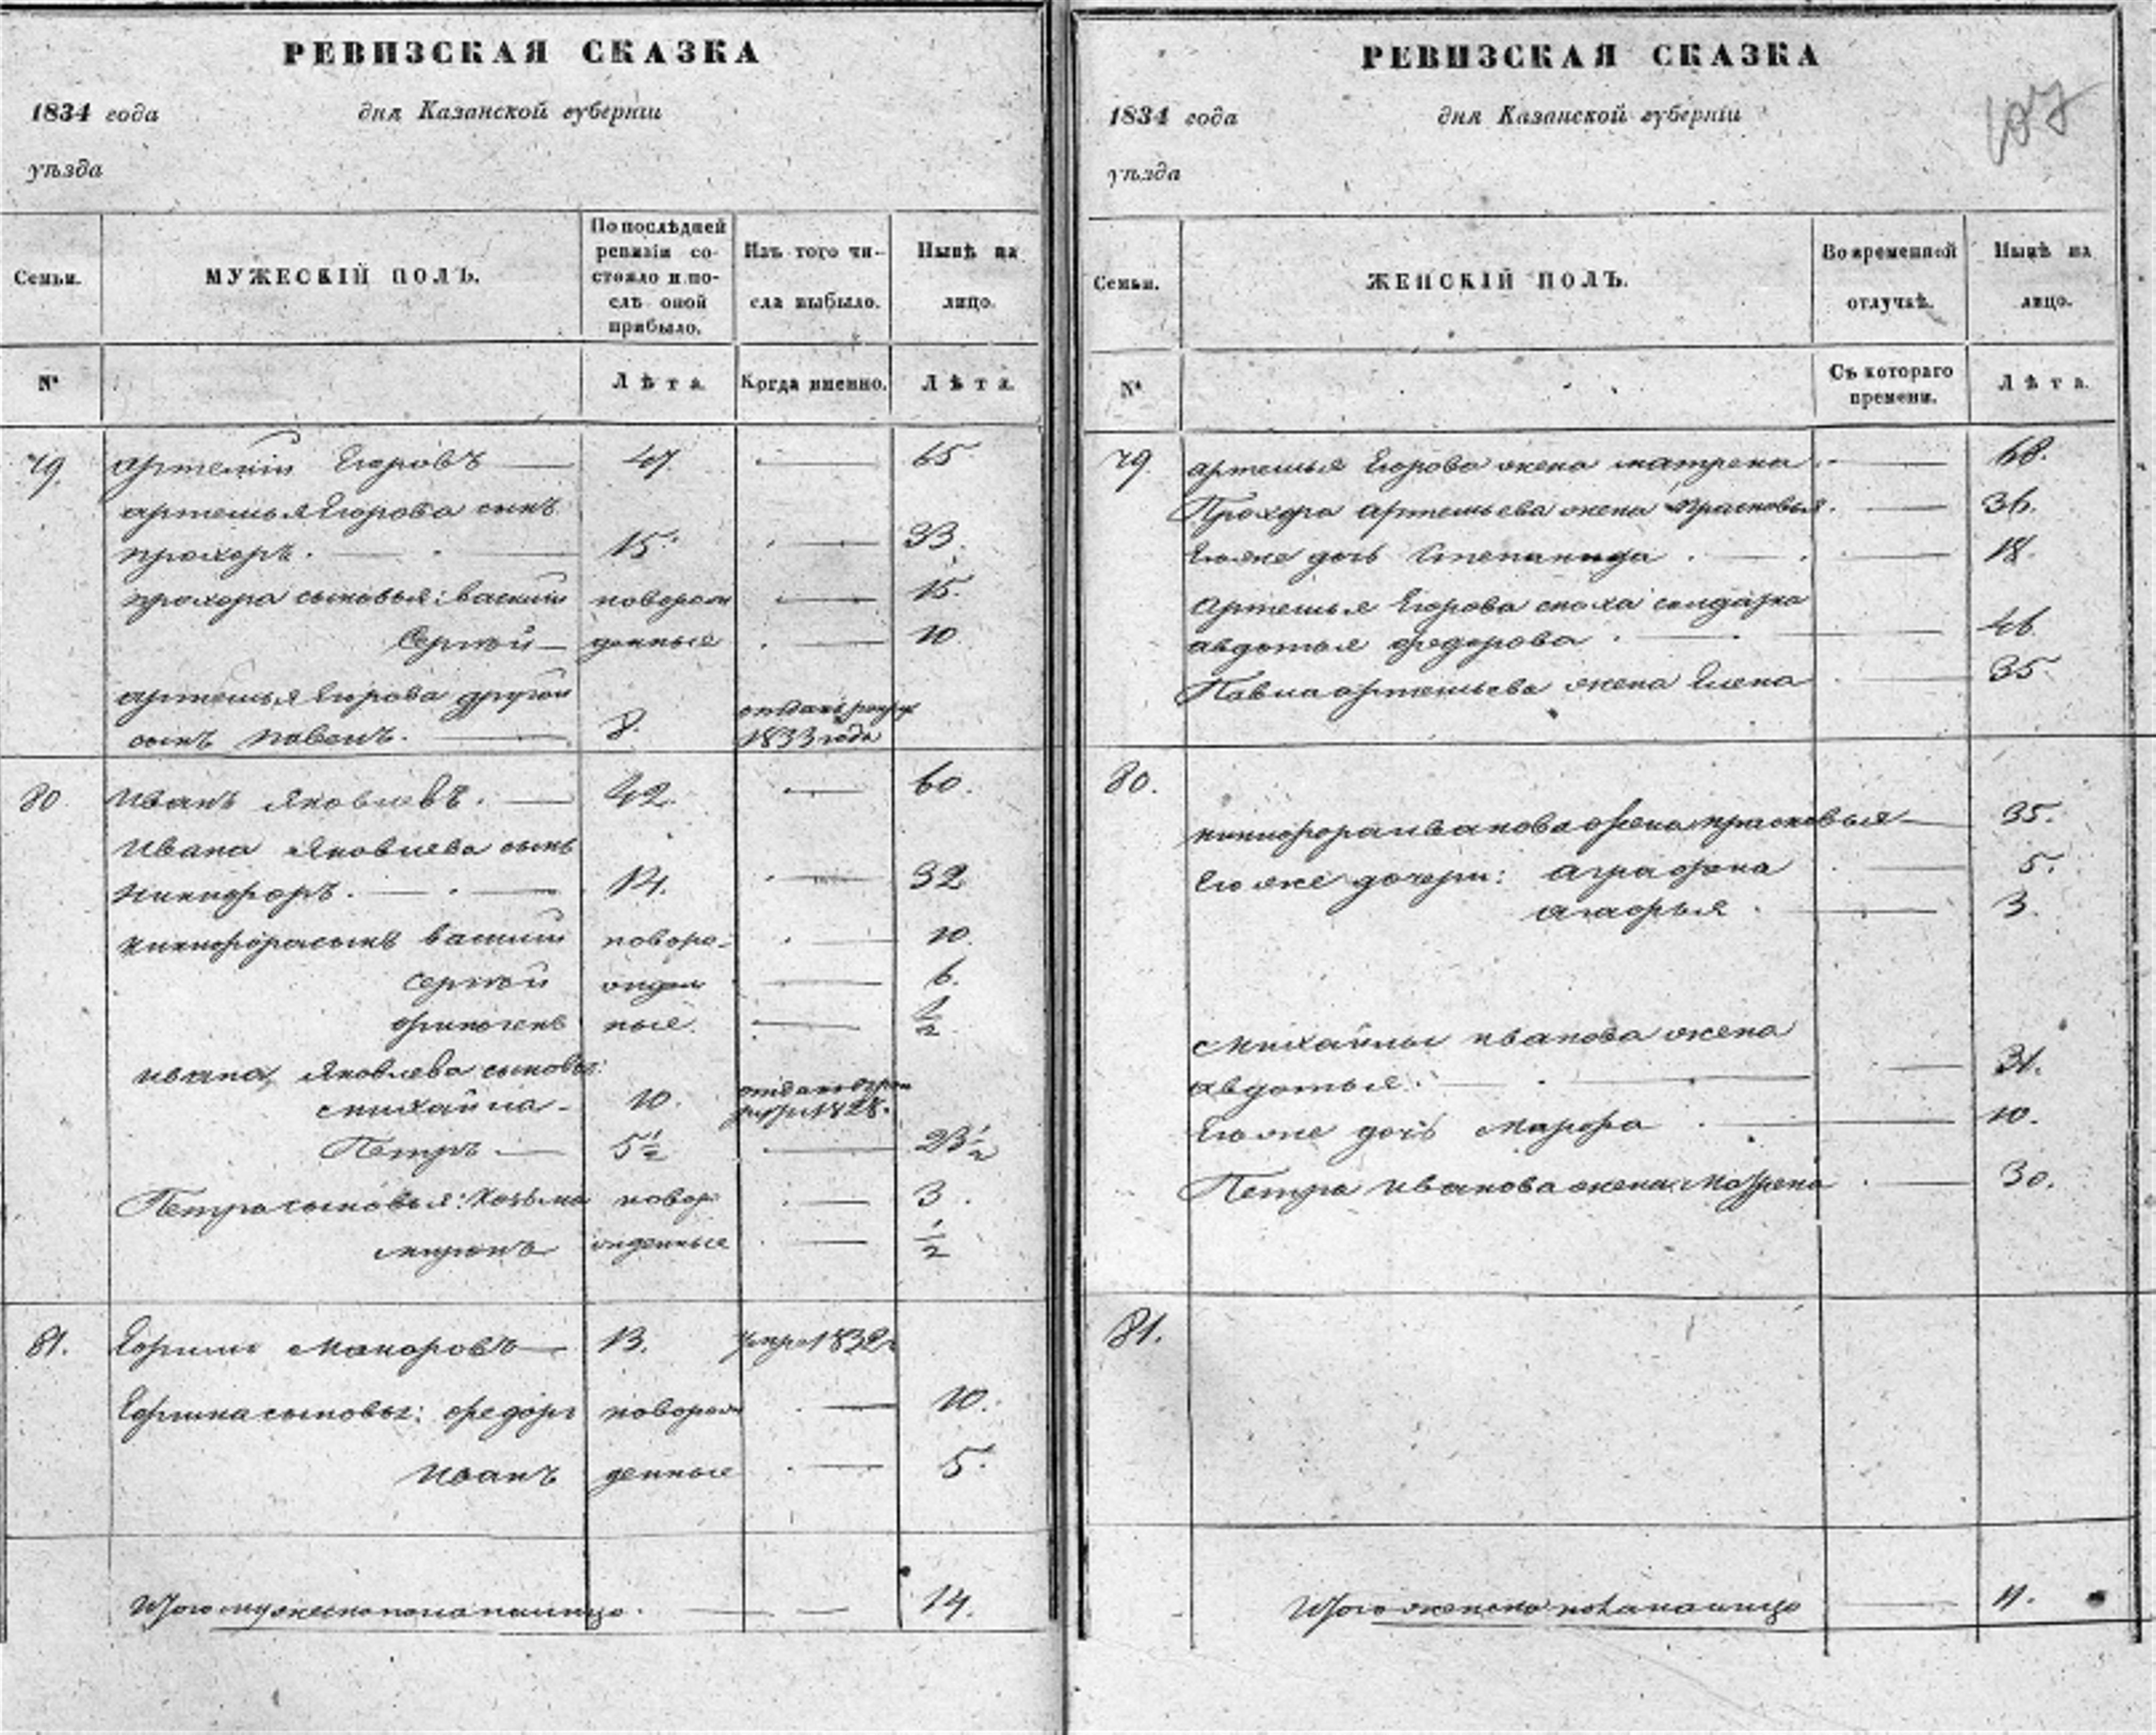 РЕВИЗСКАЯ СКАЗКА
1834 года дня Казанской губерніи
уѣзда
Семьи.
МУЖЕСКІЙ ПОЛЪ.
По послѣдней ревизіи состояло и послѣ оной прибыло.
Изъ того числа выбыло.
Нынѣ на лицо.
№
Лѣта.
Когда именно.
Лѣта.
79. Артемій Егоровъ 47. 65
Артемья Егорова сынъ
Прохоръ. 15. 33.
Прохора сыновья: Василій поворож 15.
Сергѣй денные 10
Артемья Егорова другой отданъ рекрут
сынъ Павелъ. 8. 1833 года
80 Иванъ Яковлевъ. 42. 60.
Ивана Яковлева сынъ
Никифоръ. 14. 32
Никифора сынъ Василій новоро- 10.
Сергѣй 6.
ные. 1/2
Ивана Яковлева сыновья:
Михайла 10. 1828.
Петръ 5 1/2 23 1/2
Петра сыновья: Козьма новор 3.
Миронъ жденные 1/2
81. Ефимъ Макаровъ 13. умре 1832
Ефима сыновья: Федоръ новорож 10.
Иванъ денные 5.
Итого мужеска пола на лицо. 14.
РЕВИЗСКАЯ СКАЗКА
1834 года дня Казанской губерніи
107
уѣзда
Семьи.
ЖЕНСКІЙ ПОЛЪ.
Во временной отлучкѣ.
Нынѣ на лицо.
№
Съ котораго времени.
Лѣта.
79. Артемья Егорова жена Матрена 68.
Прохора Артемьева жена Прасковья. 36.
Его же дочь Степанида 18.
Артемья Егорова сноха солдатка
Авдотья Федорова 46
Павла Артемьева жена Елена 35.
80.
Никифора Иванова жена Прасковья 35.
Его же дочери: Аграфена 5.
3.
Михайлы Иванова жена
Авдотья. 31.
Его же дочь Марфа 10.
Петра Иванова жена Матрена 30.
81.
Итого женска пола на лицо 11.